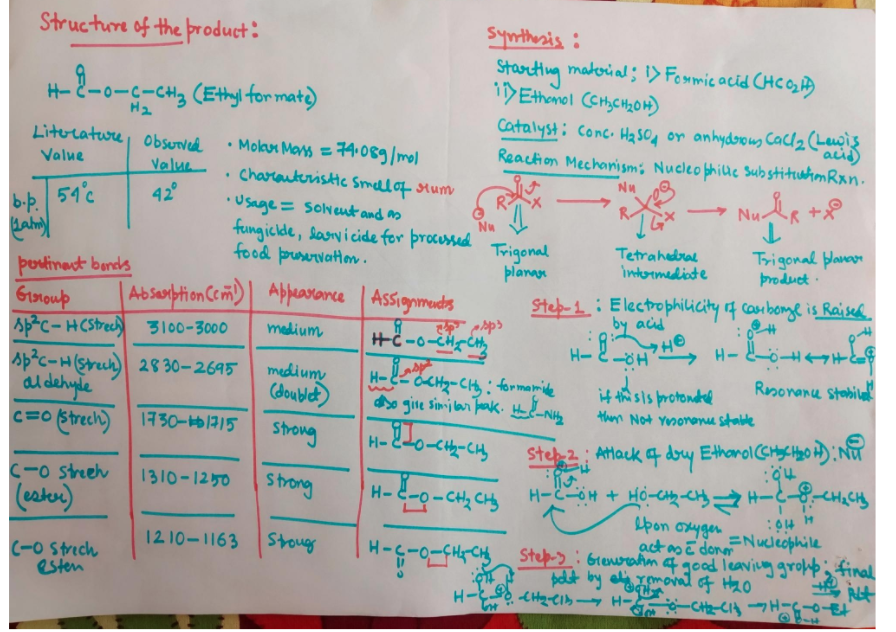 Structure of the product:
O
H-C-O-C-CH3 (Ethyl formate)
H2
Literature Value | Observed Value
b.p. (1atm) | 54°C | 42°
• Molar Mass = 74.08g/mol
• Characteristic smell of rum
• Usage = Solvent and as
fungicide, larvicide for processed
food preservation.
pertinent bonds
Group | Absorption (cm-1) | Appearance | Assignments
sp2C-H (Strech) | 3100-3000 | medium | H-C-O-CH2-CH3 sp3 sp3
sp2C-H (Strech) aldehyde | 2830-2695 | medium (doublet) | H-C-O-CH2-CH3 : formamide
also give similar peak. H-C-NH2
C=O (Strech) | 1730-1715 | Strong | H-C-O-CH2-CH3
C-O Strech (ester) | 1310-1250 | Strong | H-C-O-CH2CH3
C-O Strech ester | 1210-1163 | Strong | H-C-O-CH2-CH3
Synthesis :
Starting material; i> Formic acid (HCO2H)
ii> Ethanol (CH3CH2OH)
Catalyst : Conc. H2SO4 or anhydrous CaCl2 (Lewis acid)
Reaction Mechanism: Nucleophilic Substitution Rxn.
Nu⊖ R O X → Nu R O⊖ X → Nu O R + X⊖
Trigonal planar
Tetrahedral intermediate
Trigonal planar product.
Step-1 : Electrophilicity of carbonyl is Raised
by acid
H-C-OH H⊕ → H-C-O-H ↔ H-C
if this is protonated
then Not resonance stable
Resonance stabilized
Step-2 : Attack of dry Ethanol (CH3CH2OH) : Nu⊖
H-C-OH + HO-CH2-CH3 ⇌ H-C-O-CH2CH3
OH
H
lpon oxygen
act as e donor = Nucleophile
Step-3 : Generation of good leaving group : final
pdt by removal of H2O
H-C-O-CH2-CH3 → H-C-O-CH2-CH3 → H-C-O-Et
Pdt